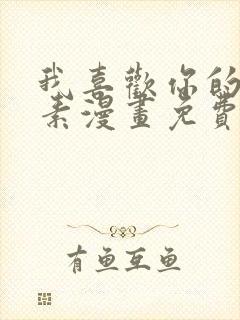 我喜歡你的
素漫畫免費
有魚互魚